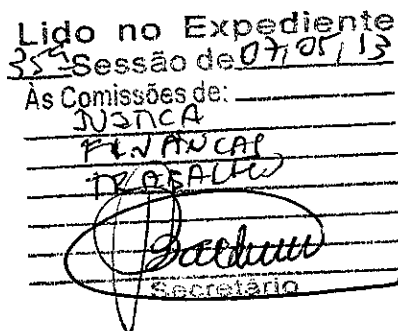 Lido no Expediente
35ª Sessão de 07/05/13
Às Comissões de:
JUSTICA
FINANCAS
TRABALHO
Secretário